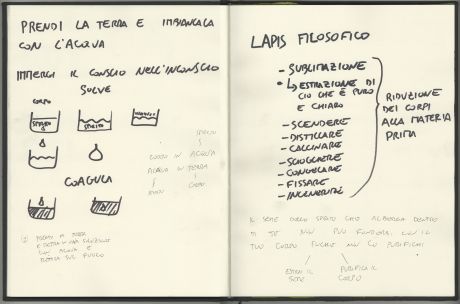 PRENDI LA TERRA E IMBIANCALA
CON L'ACQUA
IMMERGI IL CONSCIO NELL'INCONSCIO
SOLVE
CORPO
SPIRITO
SPIRITO
COAGULA
SPIRITO
CORPO IN ACQUA
ACQUA IN TERRA
ACQUA E
SUL FUOCO
LAPIS FILOSOFICO
- SUBLIMAZIONE
ESTRAZIONE DI
CIO CHE È PURO
E CHIARO
- SCENDERE
- DISTILLARE
- CALCINARE
- SCIOGLIERE
- CONGELARE
- FISSARE
- INCENERIRE
RIDUZIONE
DEI CORPI
ALLA MATERIA
PRIMA
IL SEME DELLO SPIRITO CHE ALBERGA DENTRO
DI TE NON PUÒ CON IL
TUO CORPO NON LO PURIFICHI
IL PURIFICA IL
SEME CORPO